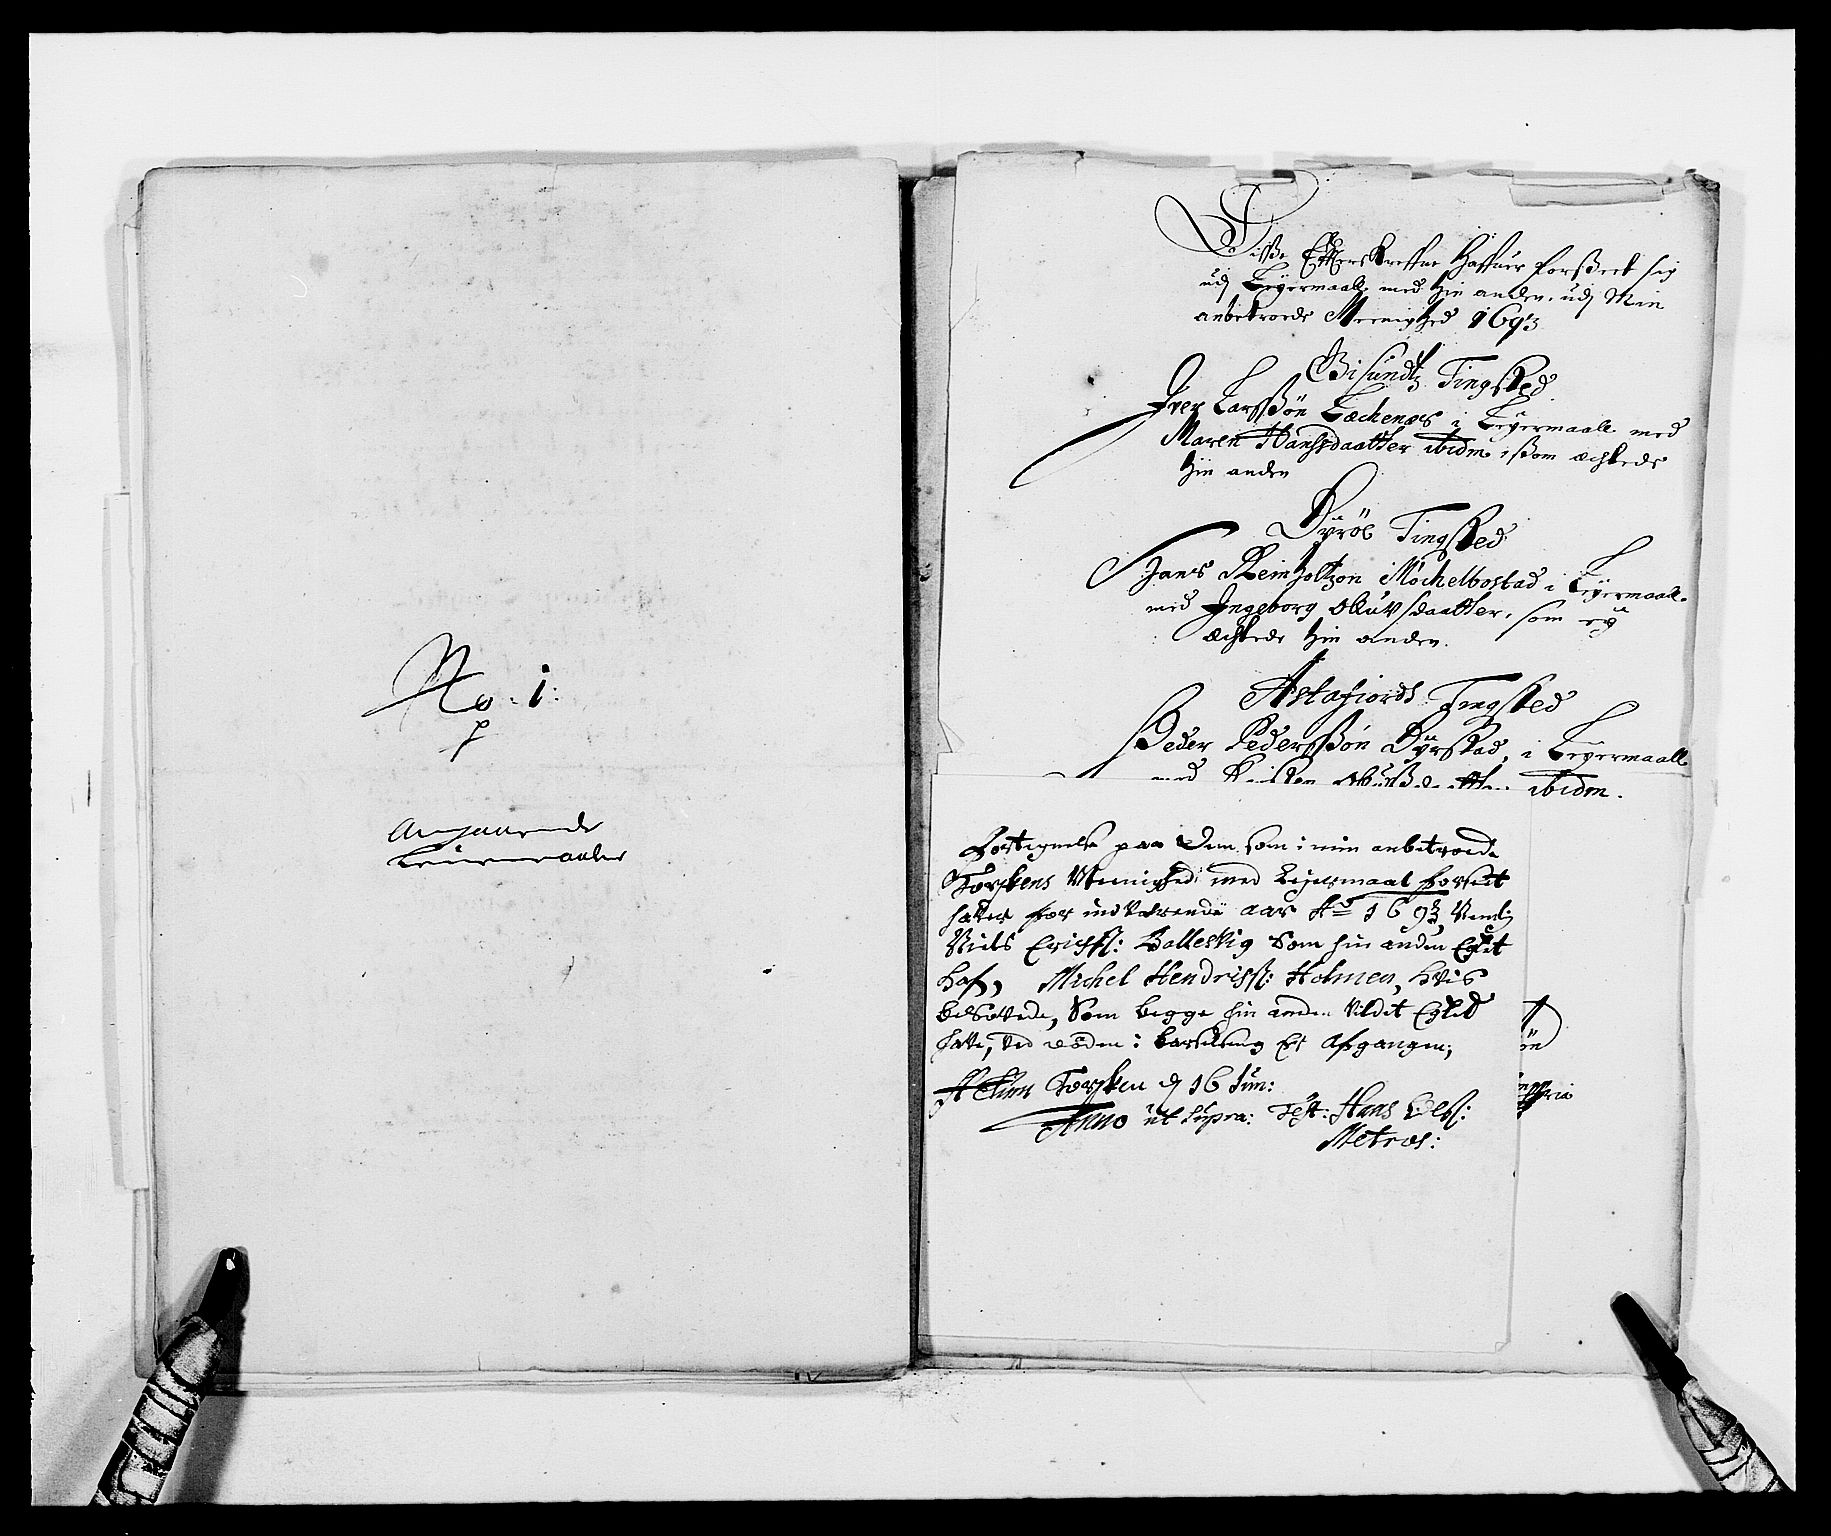 No. 1:
p
Angaaende
Leiermaaler
Disse Effterskreffne haffuer forßeet sig
udj Leyermaall med hin anden, udj Min
anbetroede Meenighed 1693
Gisundtz Tingsted
Iver Larsßøn Lachenæs i Leyermaall med
Maren Hansdaatter ibidm, ßom æchtede
hin anden
Dyrøe Tingsted
Hans Reinholtzøn Möchelbostad i Leyermaall
med Ingeborg Oluvsdaatter, som ey
æchtede hin anden.
Astafiords Tingsted
Peder Pedersßøn Dyrstad, i Leyermaall
med ibidm.
Fortegnelse paa Dem som i min anbetroede
Torskens Meenighed med Leyermaal forseet
hafver for indværende aar Ao 1693, Nemlig
Niels Erichs: Balleswig Som hin anden Egtet
haf, Michel Hendrisß: Holmen, hvis
besovede, Som begge hin anden vildet Egted
have, ved døden i barselseng Er Afgangen;
Actum Torsken d 16 Jun:
Anno ut supra: Test: Hans Olß:
Metros:
øn